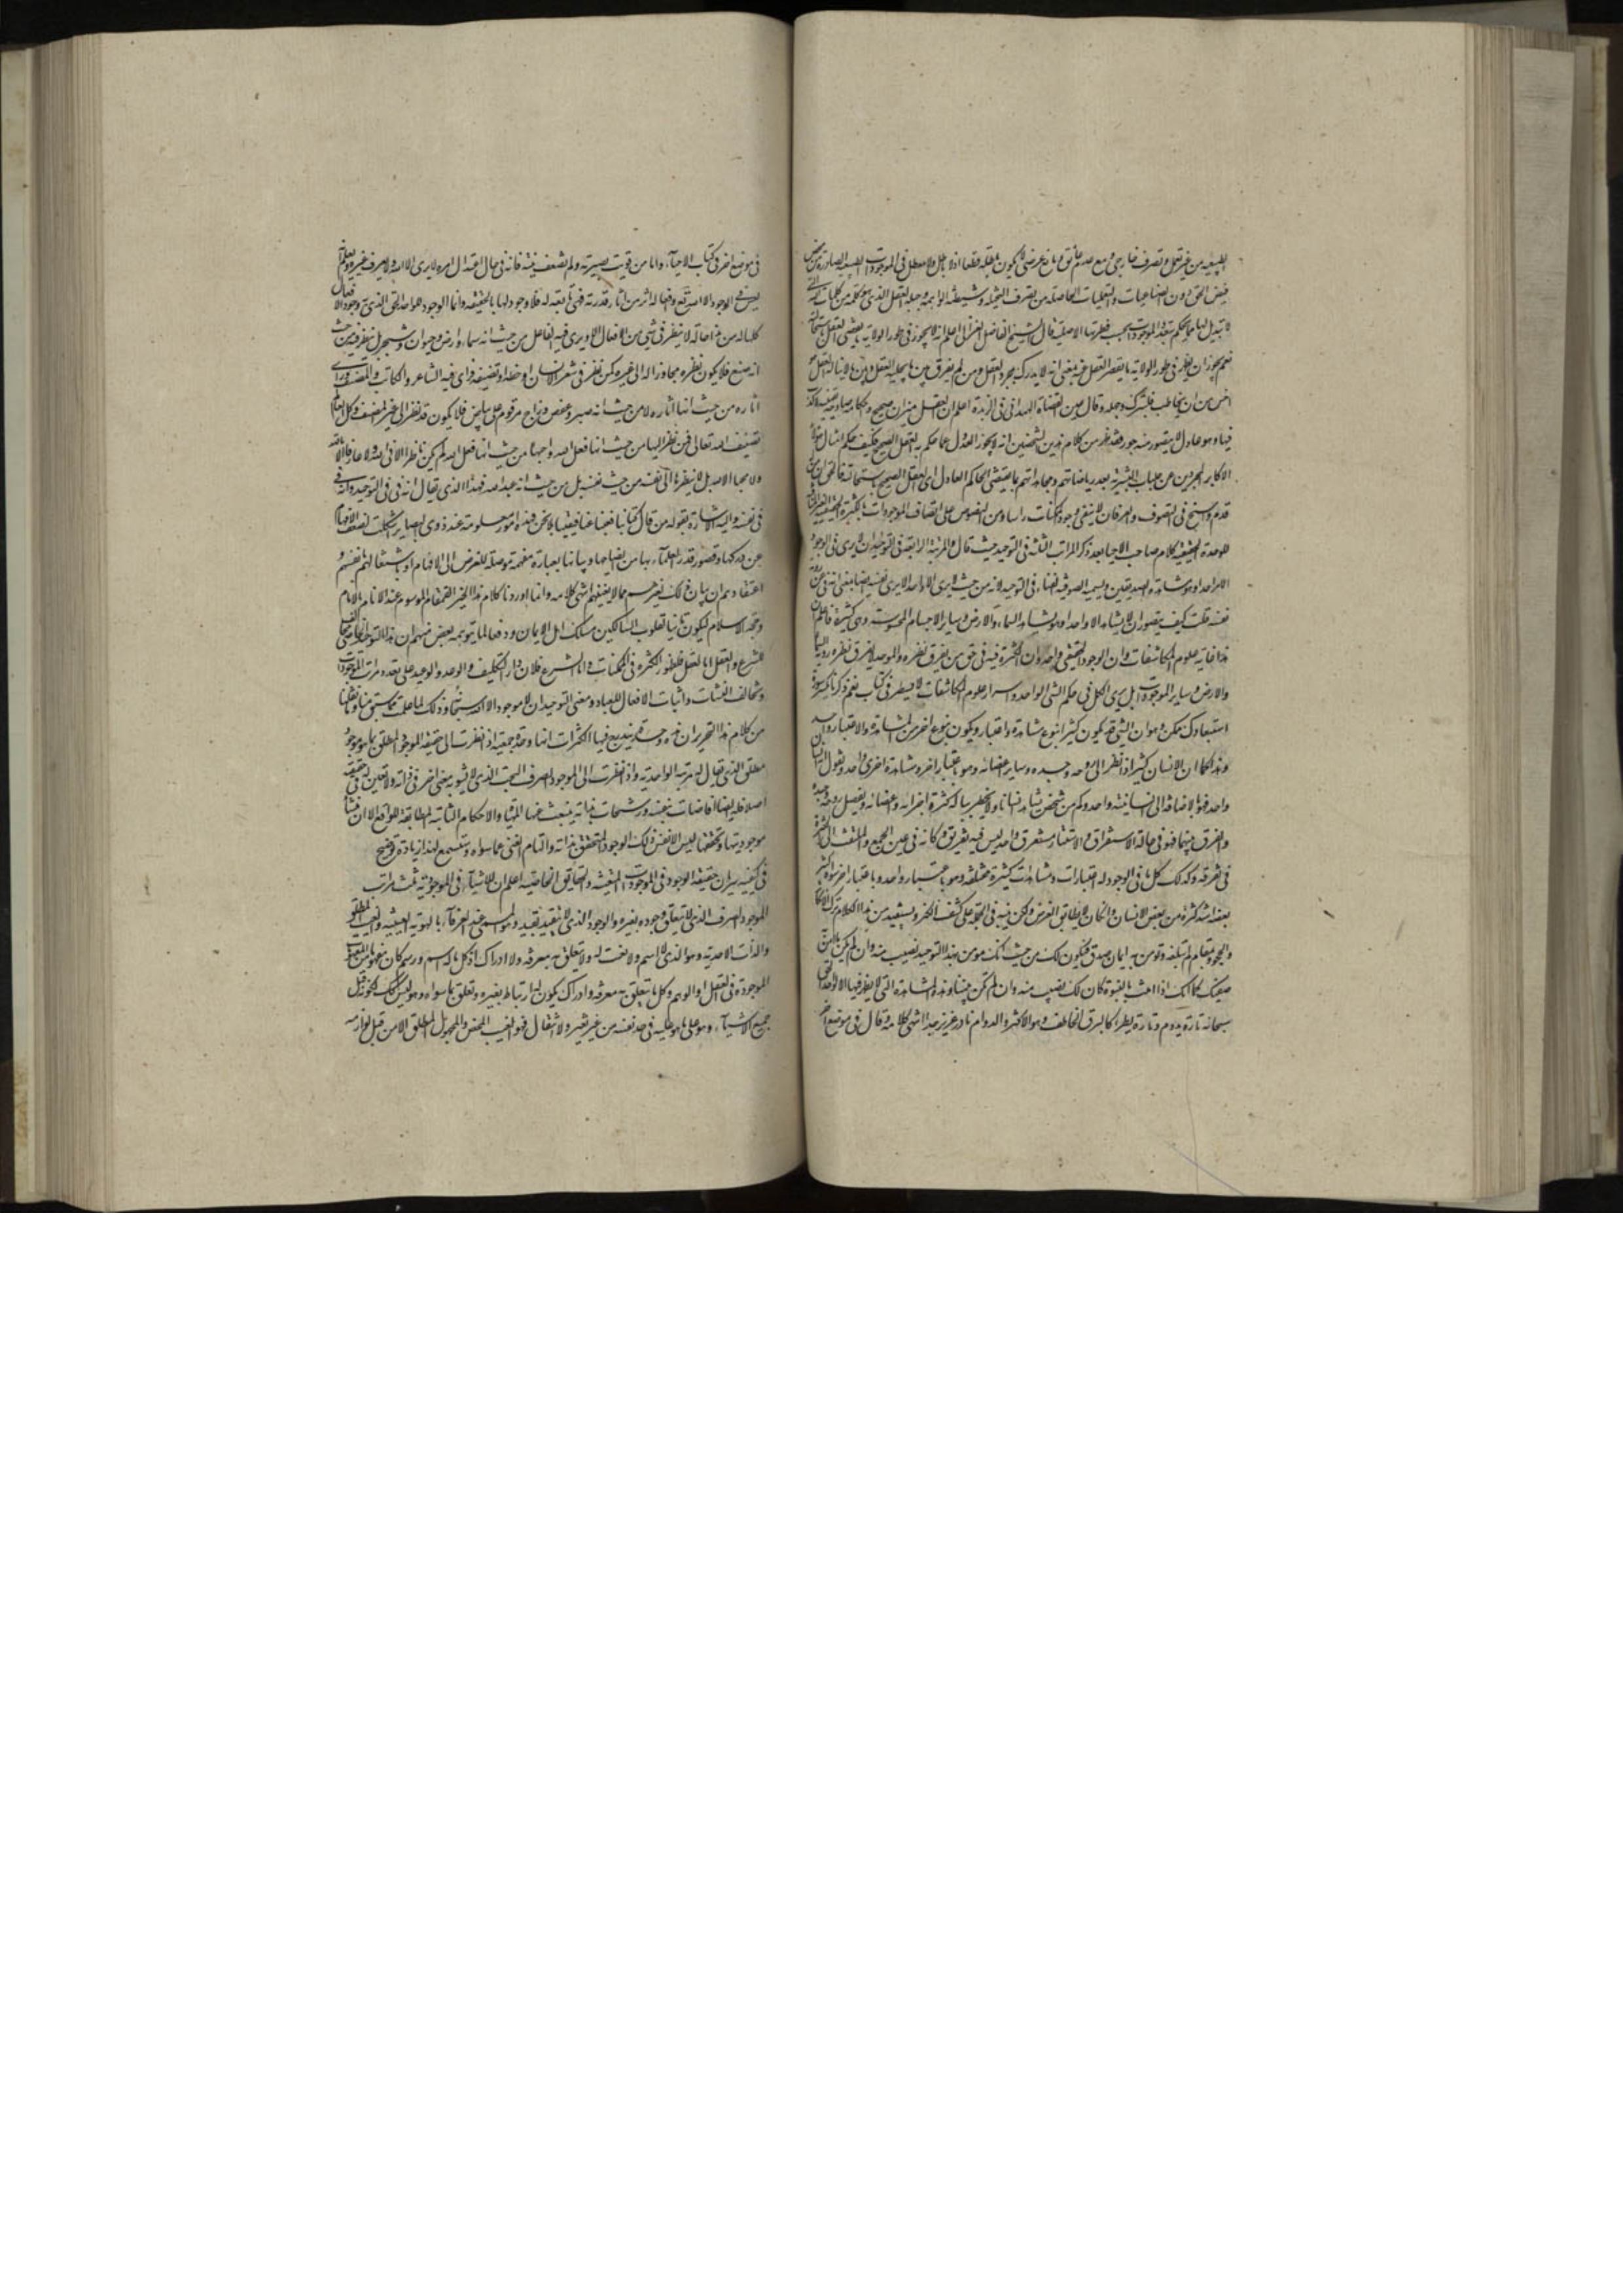 الطبيعة من غير تعمل وتصرف خارجي ومع عدم عائق ومانع عرضي لا يكون باطلة قطعا اذ لا باطل ولا معطل في الموجودات الطبيعية الصادرة من محض
فيض الحق دون الصناعيات والتعليمات الحاصلة من تصرف المتخيلة وشيطنة الواهمة وجبلة العقل الذي هو كلمة من كلمات الله التي
لا تبديل لها مما يحكم بتعدد الموجودات بحسب فطرتها الاصلية قال الشيخ الفاضل الغزالي اعلم انه لا يجوز في طور الولاية ما يقضي العقل باستحالته
نعم يجوز ان يظهر في طور الولاية ما يقصر العقل عنه بمعنى انه لا يدرك بمجرد العقل ومن لم يفرق بين ما يحيله العقل وبين ما لا يناله العقل فهو
اخس من ان يخاطب فليترك وجهله وقال عين القضاة الهمداني في الزبدة اعلم ان العقل ميزان صحيح واحكامه صادقة يقينية لا كذب
فيها وهو عادل لا يتصور منه جور فقد ظهر من كلام هذين الشيخين انه لا يجوز العدول عما حكم به العقل الصحيح فكيف حكم امثال هؤلاء
الاكابر المجردين عن جلباب البشرية بعد رياضاتهم ومجاهداتهم بما يقتضي الحاكم العادل اي العقل الصحيح باستحالته فالحق ان من له
قدم راسخ في التصوف والعرفان لا ينفي وجود الممكنات راسا ومن النصوص على اتصاف الموجودات بالكثرة الحقيقية الغير المنافية
للوحدة الحقيقية كلام صاحب الاحيا بعد ذكر المراتب الثلثة في التوحيد حيث قال والمرتبة الرابعة في التوحيد ان لا يرى في الوجود
الا واحدا وهو مشاهدة الصديقين ويسميه الصوفية الفناء في التوحيد لانه من حيث لا يرى الا واحدا لا يرى نفسه ايضا بمعنى انه فنى عن رؤية
نفسه فان قلت كيف يتصور ان لا يشاهد الا واحدا وهو يشاهد السماء والارض وساير الاجسام المحسوسة وهي كثيرة فاعلم ان
هذا غاية علوم المكاشفات وان الوجود الحقيقي واحد وان الكثرة فيه في حق من يفرق نظره والموحد لا يفرق نظره رؤية السماء
والارض وساير الموجودات بل يرى الكل في حكم الشئ الواحد واسرار علوم المكاشفات لا يسطر في كتاب نعم ذكر ما يكسر سورة
استبعادك ممكن وهو ان الشئ قد يكون كثيرا بنوع مشاهدة واعتبار ويكون بنوع اخر من المشاهدة والاعتبار واحد
وهذا كما ان الانسان كثير اذا نظر الى روحه وجسده وساير اعضائه وهو باعتبار اخر ومشاهدة اخرى واحد ونقول انه انسان
واحد فهو بالاضافة الى الانسانية واحد وكم من شخص يشاهد انسانا ولا يخطر بباله كثرة اجزائه واعضائه وتفصيل روحه وجسده
والفرق بينهما فهو في حالة الاستغراق والاستهتار مستغرق واحد ليس فيه تفريق وكانه في عين الجمع والملتفت الى الكثرة
في تفرقه وكذلك كل ما في الوجود له اعتبارات ومشاهدات كثيرة مختلفة وهو باعتبار واحد وباعتبار اخر سواه كثير
بعضه اشد كثرة من بعض الانسان وان كان لا يطابق الغرض ولكن ينبه في الجملة على كشف الكثير ويستفيد من هذا الكلام ترك الانكار
والجحود بمقام لم تبلغه وتؤمن به ايمان صدق فيكون لك من حيث انك مومن بهذا التوحيد نصيب منه وان لم يكن ما امنت به
صفتك كما انك اذا امنت بالنبوة كان لك نصيب منه وان لم تكن نبيا وهذه المشاهدة التي لا يظهر فيها الا الواحد الحق
سبحانه تارة يدوم وتارة يطرء كالبرق الخاطف وهو الاكثر والدوام نادر عزيز جدا انتهى كلامه وقال في موضع اخر
في موضع اخر في كتاب الاحياء واما من قويت بصيرته ولم تضعف منته فانه في حال اعتدال امره لا يرى الا الله ولا يعرف غيره ويعلم انه
ليس في الوجود الا الله تعه وافعاله اثر من اثار قدرته فهي تابعة له فلا وجود لها بالحقيقة وانما الوجود للواحد الحق الذي به وجود الافعال
كلها ومن هذا حاله لا ينظر في شئ من الافعال الا ويرى فيه الفاعل من حيث انه سماء وارض وحيوان وشجر بل ينظر فيه من حيث
انه صنع فلا يكون نظره مجاوزا له الى غيره كمن نظر في شعر الانسان او خطه او تصنيفه وراى فيه الشاعر والكاتب والمصنف وراى
اثاره من حيث انها اثاره لا من حيث انه حبر وعفص وزاج مرقوم على بياض فلا يكون قد نظر الى غير المصنف وكل العالم
تصنيف الله تعالى فمن نظر اليها من حيث انها فعل الله واحبها من حيث انها فعل الله لم يكن ناظرا الا في الله ولا عارفا الا بالله
ولا محبا الا لله بل لا ينظر الى نفسه من حيث نفسه بل من حيث انه عبد الله فهذا الذي يقال انه فنى في التوحيد وانه فنى
في نفسه واليه الاشارة بقوله من قال كنا بنا ففنينا عنا فبقينا بلا نحن فهذه امور معلومة عند ذوي البصاير اشكلت لضعف الافهام
عن دركها وقصور قدرة العلماء بها من ايضاحها وبيانها بعبارة مفهمة موصلة للغرض الى الافهام او باشتغالهم بانفسهم و
اعتقادهم ان بيان ذلك لغيرهم مما لا يعنيهم انتهى كلامه وانما اوردنا كلام هذا الخير القمقام الموسوم عند الانام بالامام
وحجة الاسلام ليكون تليينا لقلوب السالكين مسلك اهل الايمان ودفعا لما يتوهمه بعض منهم ان هذا التوحيد الخاص مخالف
للشرع والعقل اما العقل فلظهور الكثرة في الممكنات واما الشرع فلان مدار التكليف والوعد والوعيد على تعدد مراتب الموجودات
وتخالف النشات واثبات الافعال للعباد ومعنى التوحيد ان لا موجود الا الله سبحانه وذلك لما علمت مما سبق منا وما نقلنا
من كلام هذا التحرير ان هذه وحدة يندمج فيها الكثرات انها وحدة جمعية اذا نظرت الى حقيقة الموجود المطلق بما هو موجود
مطلق الذي يقال له مرتبة الواحدية واذا نظرت الى الموجود الصرف البحت الذي لا يشوبه معنى اخر في ذاته ولا تعين له في حقيقته
اصلا فله ايضا افاضات بنفسه ورشحات بذاته ينبعث عنها المهيات والاحكام الثابتة المطابقة للواقع الا ان منشأ
موجوديتها وتحققها ليس الا نفس ذلك الوجود المتحقق بذاته والتام الغني عما سواه وتستسمع لهذا زيادة توضيح
في كيفية سريان حقيقة الوجود في الموجودات المتعينة والحقايق الخاصية اعلم ان للاشياء في الموجودية ثلث مراتب
الموجود الصرف الذي لا يتعلق وجوده بغيره والوجود الذي لا يتقيد بقيد وهو المسمى عند العرفاء بالهوية الغيبية والغيب المطلق
والذات الاحدية وهو الذي لا اسم ولا نعت له ولا يتعلق به معرفة ولا ادراك اذ كل ما له اسم ورسم كان مفهوما من المفهومات
الموجودة في العقل او الوهم وكل ما يتعلق به معرفة وادراك يكون له ارتباط بغيره وتعلق بما سواه وهو ليس كذلك لكونه قبل
جميع الاشياء وهو على ما هو عليه في حد نفسه من غير تغير ولا انتقال فهو الغيب المحض والمجهول المطلق الا من قبل لوازمه